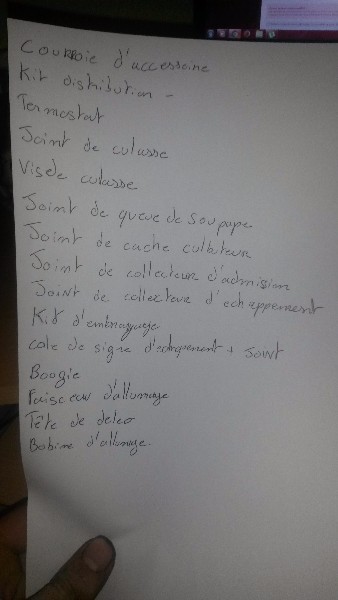 Courroie d'accessoire
Kit distribution -
Termostat
Joint de culasse
Vis de culasse
Joint de queue de soupape
Joint de cache culbuteur
Joint de collecteur d'admision
Joint de collecteur d'echappement
Kit d'embrayage
cole de signe d'echapement + Joint
Boogie
Faisceau d'allumage
Tête de delco
Bobine d'allumage